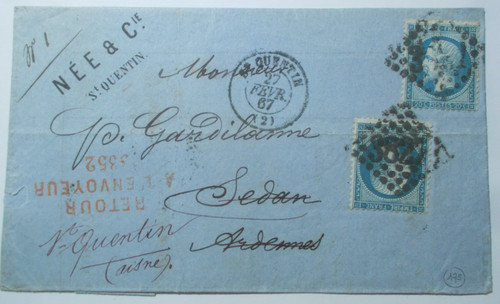 N° 1
NÉE & CIE
ST QUENTIN.
ST QUENTIN
27
FÉVR.
67
(2)
Monsieur
p. Gardilanne
Sedan
Ardennes
RETOUR
À L'ENVOYEUR
3352
St Quentin
(aisne).
175